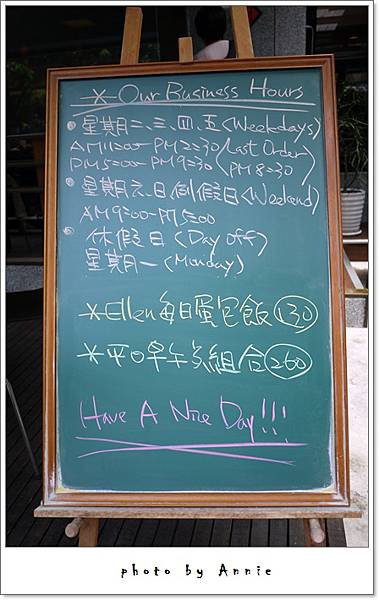 ＊Our Business Hours
• 星期二、三、四、五 (Weekdays)
AM11:00~PM2:30 (Last Order)
PM5:00~PM9:30 (PM8:30)
• 星期六、日例假日 (Weekend)
AM9:00~PM5:00
• 休假日 (Day off)
星期一 (Monday)
＊Ellen每日蛋包飯 130
＊平日早午餐組合 260
Have A Nice Day!!!
photo by Annie